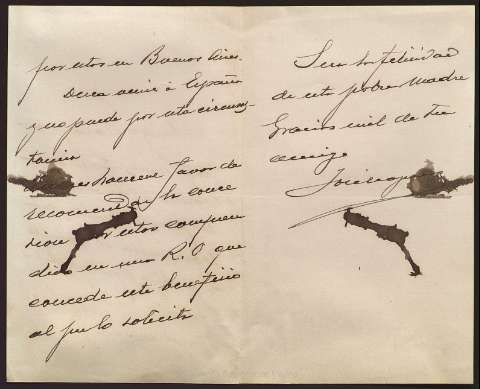 por estos en Buenos Aires.
Desea venir á España
y no puede por esta circuns-
tancia
hazme favor de
recomendar la conce
sion por estar compren
dido en una R. O que
concede este beneficio
al que lo solicita
Sera la felicidad
de esta pobre Madre
Gracias mil de tu
amigo